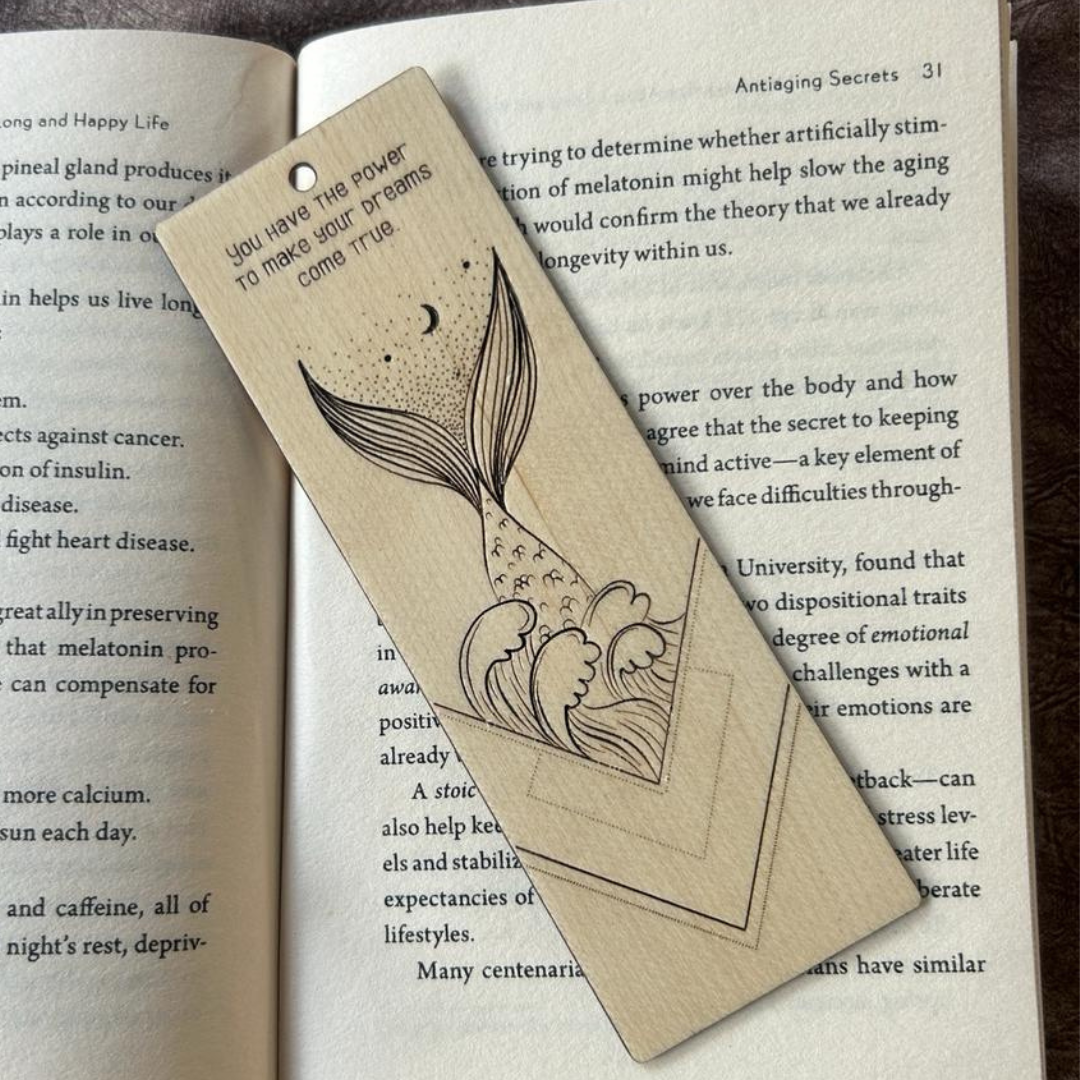 ong and Happy Life
pineal gland produces it
according to our
plays a role in
in helps us live long
em.
ects against cancer.
on of insulin.
disease.
fight heart disease.
great ally in preserving
that melatonin pro-
can compensate for
more calcium.
sun each day.
and caffeine, all of
night's rest, depriv-
You have the power
to make your dreams
come true.
Antiaging Secrets 31
re trying to determine whether artificially stim-
tion of melatonin might help slow the aging
would confirm the theory that we already
longevity within us.
power over the body and how
agree that the secret to keeping
mind active—a key element of
we face difficulties through-
University, found that
wo dispositional traits
degree of emotional
in challenges with a
awar eir emotions are
positiv
already
A stoic tback—can
also help kee stress lev-
els and stabiliz eater life
expectancies of berate
lifestyles.
Many centenaria ians have similar